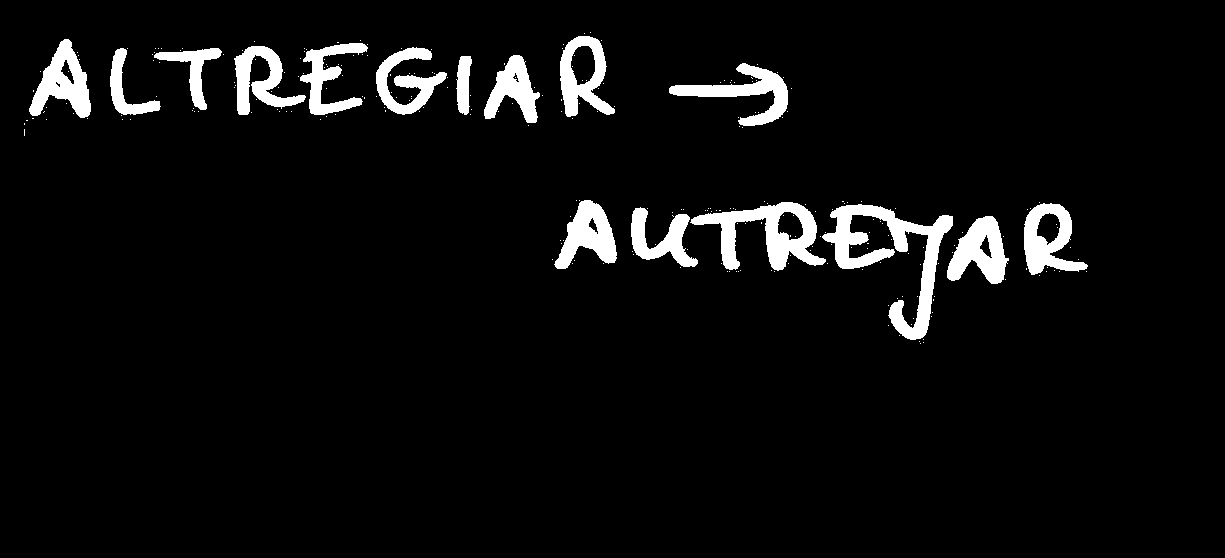 ALTREGIAR →
AUTREJAR